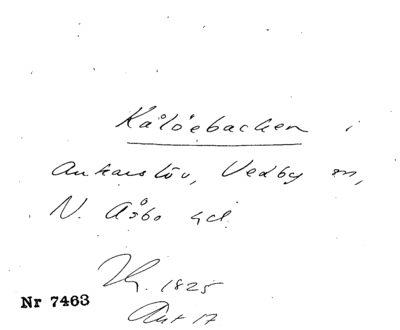 Kålöebacken i
Ankarslöv, Vedby sn,
N. Åsbo hd.
Hy. 1825
Akt 17
Nr 7463